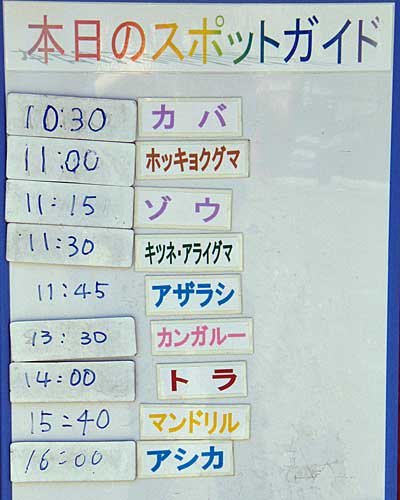 本日のスポットガイド
10:30 カバ
11:00 ホッキョクグマ
11:15 ゾウ
11:30 キツネ・アライグマ
11:45 アザラシ
13:30 カンガルー
14:00 トラ
15:40 マンドリル
16:00 アシカ